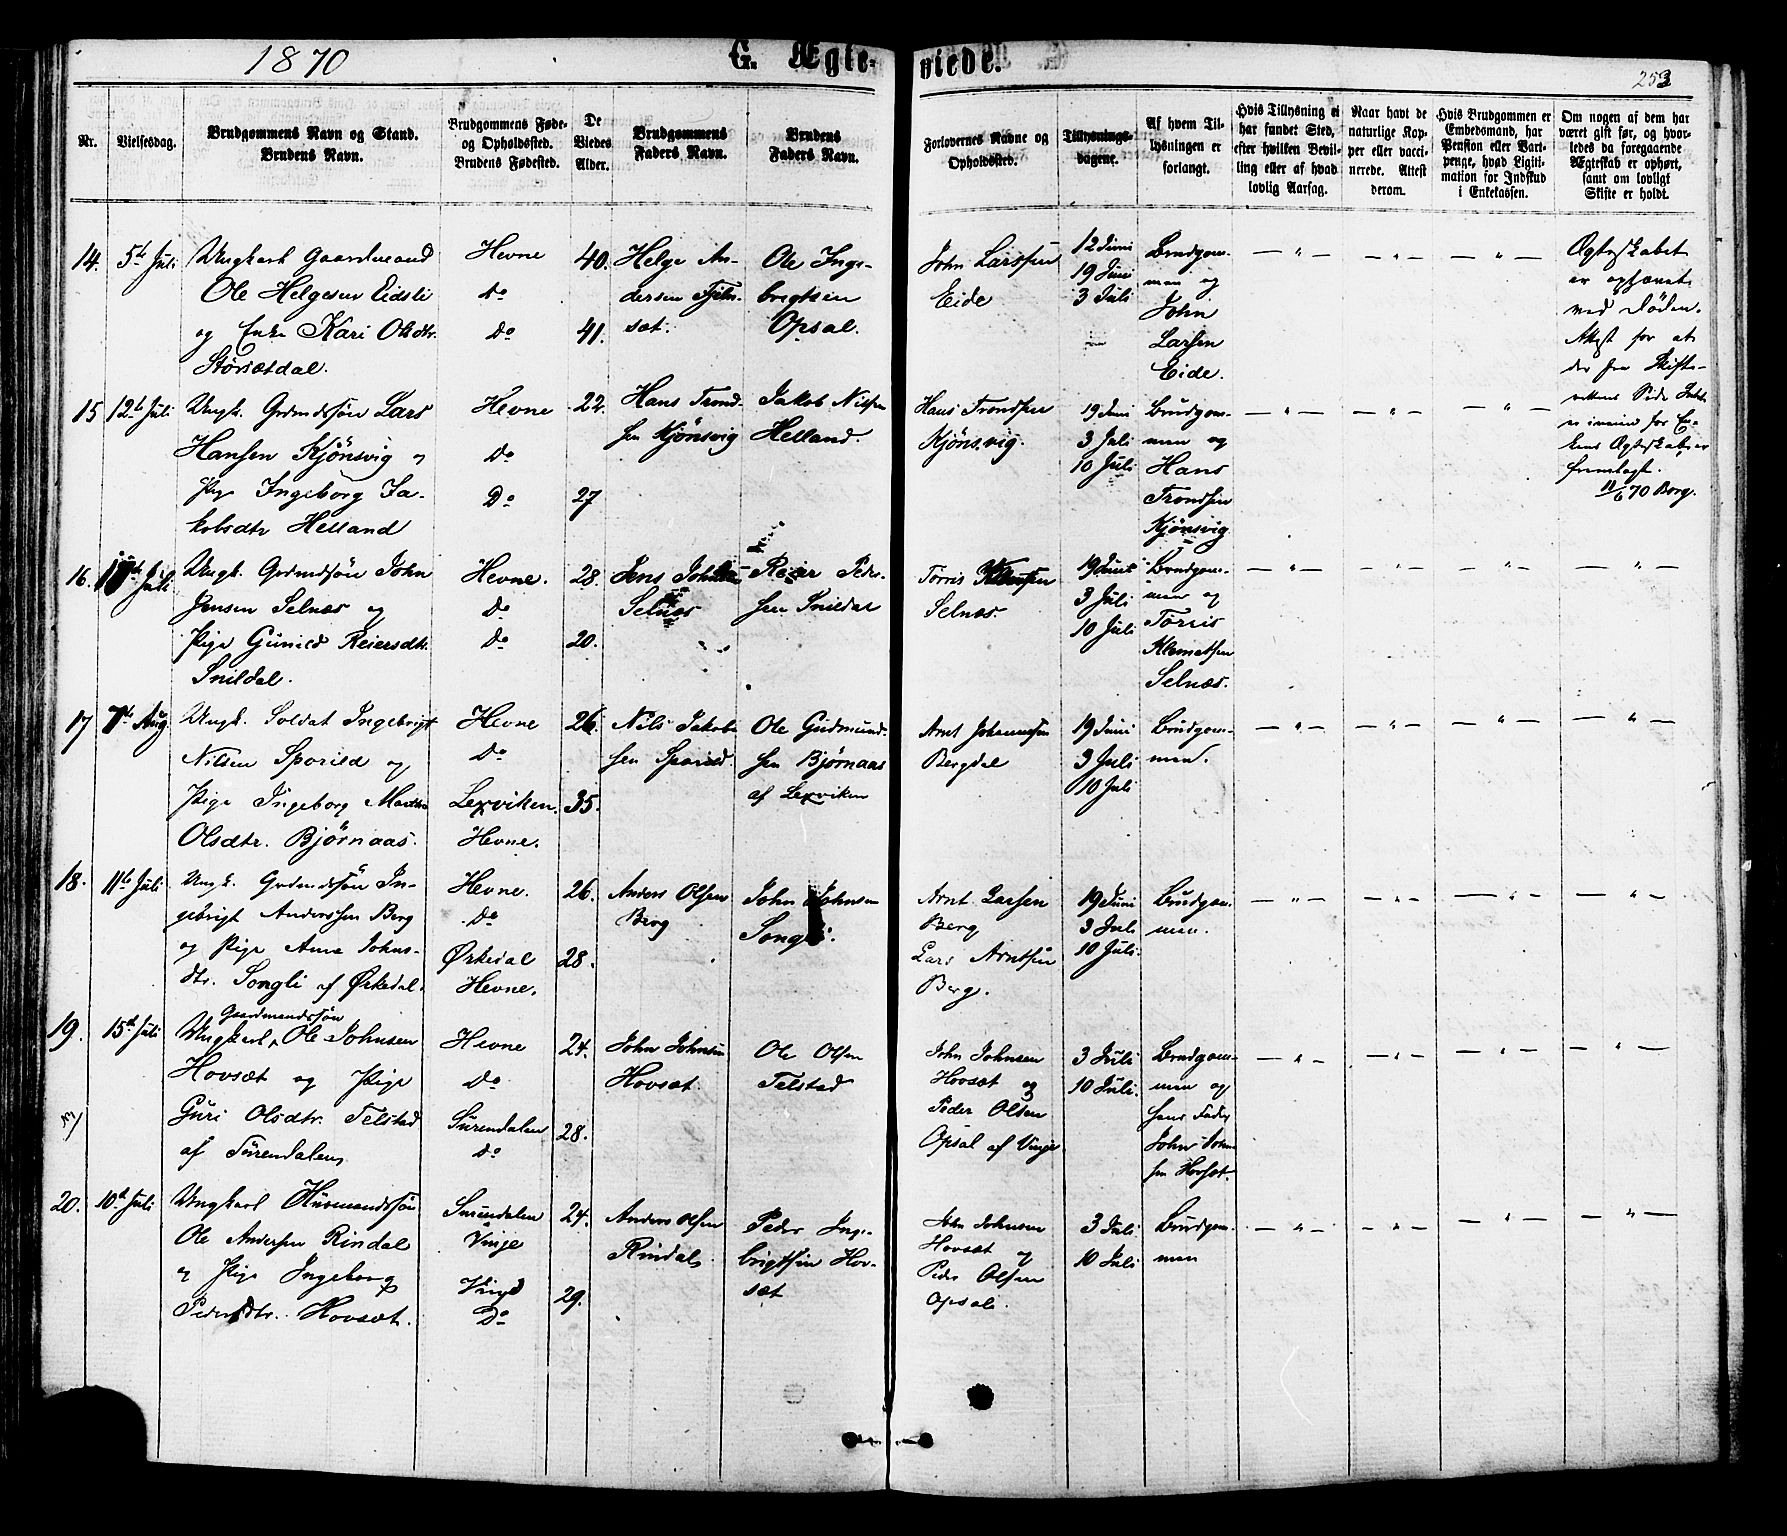 1870
G. Ægte-viede.
253
Nr.
Vielsesdag.
Brudgommens Navn og Stand.
Brudens Navn.
Brudgommens Føde-
og Opholdssted.
Brudens Fødested.
De
Viedes
Alder.
Brudgommens
Faders Navn.
Brudens
Faders Navn.
Forlovernes Navne og
Opholdssted.
Tillysnings-
dagene.
Af hvem Til-
lysningen er
forlangt.
Hvis Tillysning ei
har fundet Sted,
efter hvilken Bevil-
ling eller af hvad
lovlig Aarsag.
Naar havt de
naturlige Kop-
per eller vacci-
nerede. Attest
derom.
Hvis Brudgommen er
Embedsmand, har
Pension eller Vart-
penge, hvad Ligiti-
mation for Indskud
i Enkekassen.
Om nogen af dem har
været gift før, og hvor-
ledes da foregaaende
Ægteskab er ophørt,
samt om lovligt
Skifte er holdt.
14.
5te Juli
Ungkarl Gaardmand
Ole Helgesen Eidsli
og Enke Kari Olsdtr.
Størsætdal.
Hevne
Do
Do
40.
41.
Helge An-
dersen Fjeln-
sæt.
Ole Inge-
brigtsen
Opsal.
John Larssen
Eide
12 Juni
19 Juni
3 Juli
Brudgom-
men og
John
Larsen
Eide.
— " —
— " —
— " —
Ægteskabet
er ophævet
ved Døden.
Attest for at
der fra Skifte-
rettens Side Intet
er iveien for En-
kens Ægteskab er
fremlagt.
11/6 70 Borg.
15
12te Juli
Ungk. Grdmdssøn Lars
Hansen Kjönsvig og
Pige Ingeborg Ja-
kobsdtr Helland
Hevne
Do
Do
22.
27
Hans Trond-
sen Kjönsvig
Jakob Nilsen
Helland.
Hans Trondsen
Kjönsvig.
19 Juni
3 Juli
10 Juli
Brudgom-
men og
Hans
Trondsen
Kjönsvig
— " —
— " —
— " —
16.
Juli
Ungk. Grdmdsøn John
Jensen Selnæs og
Pige Gunild Reiersdtr.
Snildal.
Hevne.
Do
Do
28.
20.
Jens Johnsen
Selnæs
Reier Peder-
sen Snildal
Torris
Selnæs.
19 Juni
3 Juli
10 Juli
Brudgom-
men og
Torris
Klemetsen
Selnæs.
— " —
— " —
— " —
— " —
17
7de Aug
Ungk. Soldat Ingebrigt
Nilsen Sporild og
Pige Ingeborg Martha
Olsdtr. Bjørnaas.
Hevne
Do
Lexviken.
Hevne.
26.
35.
Nils Jakob-
sen Sporild.
Ole Gudmund-
sen Bjørnaas
af Lexviken
Arnt Johannssen
Bergdal
19 Juni
3 Juli
10 Juli
Brudgom-
men.
— " —
— " —
— " —
— " —
18.
11te Juli
Ungk. Grdmdssøn In-
gebrigt Anderssen Berg
og Pige Anne Johns-
dtr. Songli af Ørkedal.
Hevne.
Do
Ørkedal
Hevne.
26.
28.
Anders Olsen
Berg
John Johnsen
Songli.
Arnt Larsen
Berg
Lars Arntsen
Berg.
19 Juni
3 Juli
10 Juli.
Brudgom-
men.
— " —
— " —
— " —
— " —
19.
15de Juli
Gaardmandssøn
Ungkarl Ole Johnsen
Hovsæt og Pige
Guri Olsdtr. Telstad
af Surendalen
Hevne
Do
Surendalen
Do
24.
28.
John Johnsen
Hovsæt.
Ole Olsen
Telstad
John Johnsen
Hovsæt og
Peder Olsen
Opsal af Vinje
3 Juli
10 Juli.
Brudgom-
men og
hans Fader
John John-
sen Hovsæt.
— " —
— " —
— " —
— " —
20.
10de Juli
Ungkarl Husmandssøn
Ole Andersen Rindal
og Pige Ingeborg
Pedersdtr. Hovsæt.
Surendalen
Vinje
Vinje
Do
24.
29.
Anders Olsen
Rindal
Peder Inge-
brigtsen Hov-
sæt
John Johnsen
Hovsæt og
Peder Olsen
Opsal.
3 Juli
10 Juli
Brudgom-
men
— " —
— " —
— " —
— " —